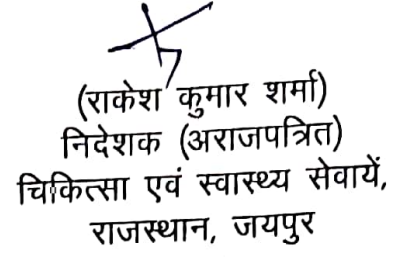 (राकेश कुमार शर्मा)
निदेशक (अराजपत्रित)
चिकित्सा एवं स्वास्थ्य सेवायें,
राजस्थान, जयपुर